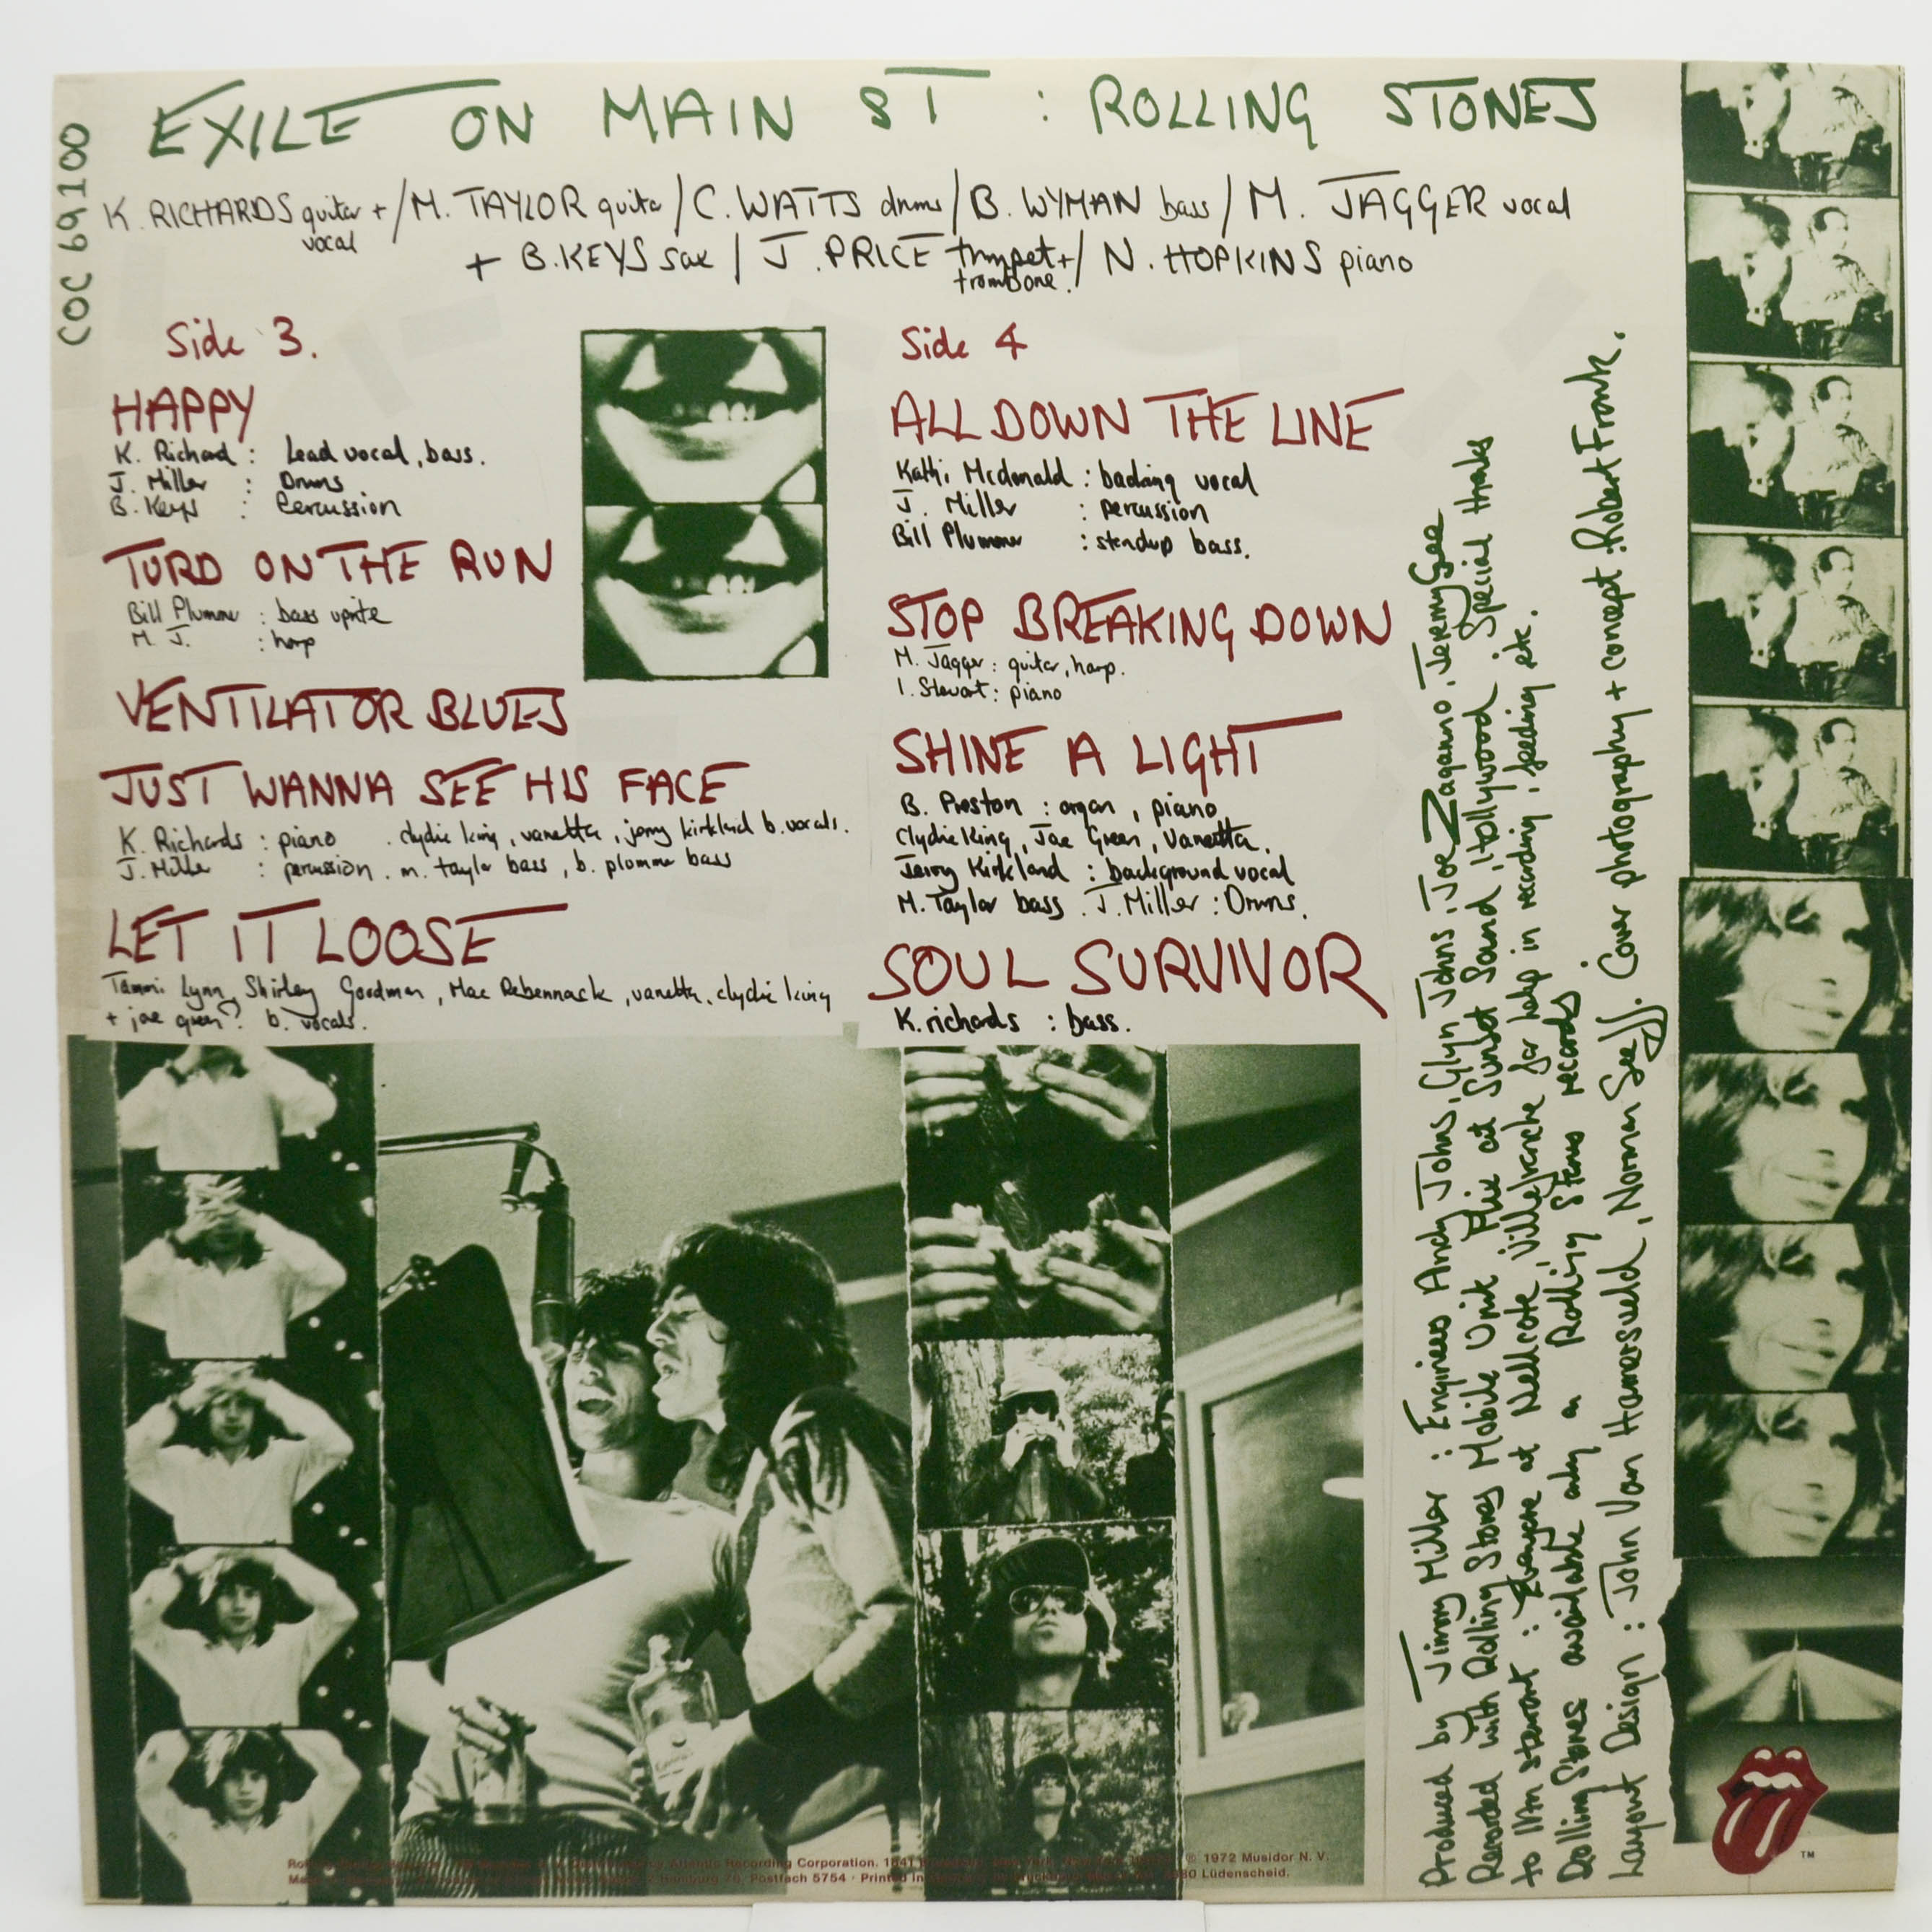 EXILE ON MAIN ST : ROLLING STONES
COC 69100
K. RICHARDS guitar + vocal / M. TAYLOR guita / C. WATTS drums / B. WYMAN bass / M. JAGGER vocal
+ B. KEYS sax / J. PRICE trumpet + trombone. / N. HOPKINS piano
Side 3.
HAPPY
K. Richard : Lead vocal, bass.
J. Miller : Drums
B. Keys : Percussion
TURD ON THE RUN
Bill Plummer : bass uprite
M. J. : harp
VENTILATOR BLUES
JUST WANNA SEE HIS FACE
K. Richards : piano . clydie king, vanetta, jerry kirkland b. vocals.
J. Miller : percussion . m. taylor bass, b. plummer bass
LET IT LOOSE
Tammi Lynn, Shirley Goodman, Mac Rebennack, vanetta, clydie king
+ joe green? b. vocals.
Side 4
ALL DOWN THE LINE
Kathi Mcdonald : backing vocal
J. Miller : percussion
Bill Plummer : standup bass.
STOP BREAKING DOWN
M. Jagger : guitar, harp.
I. Stewart : piano
SHINE A LIGHT
B. Preston : organ, piano
Clydie King, Joe Green, Vanetta,
Jerry Kirkland : background vocal
M. Taylor bass . J. Miller : Drums.
SOUL SURVIVOR
K. richards : bass.
Produced by Jimmy Miller : Engineers Andy Johns, Glyn Johns, Joe Zaganno, Jeremy Gee
Recorded with Rolling Stones Mobile Unit Mix at Sunset Sound, Hollywood : Special thanks
to Ian stewart : Everyone at Nellcote, Villefranche for help in recording, feeding etc.
Rolling Stones available only on Rolling Stones records
Layout Design : John Van Hamersveld, Norman Seeff. Cover photography + concept : Robert Frank.
Atlantic Recording Corporation, 1841 ℗ 1972 Musidor N. V.
2 Hamburg 76, Postfach 5754 · Printed in Lüdenscheid.
TM